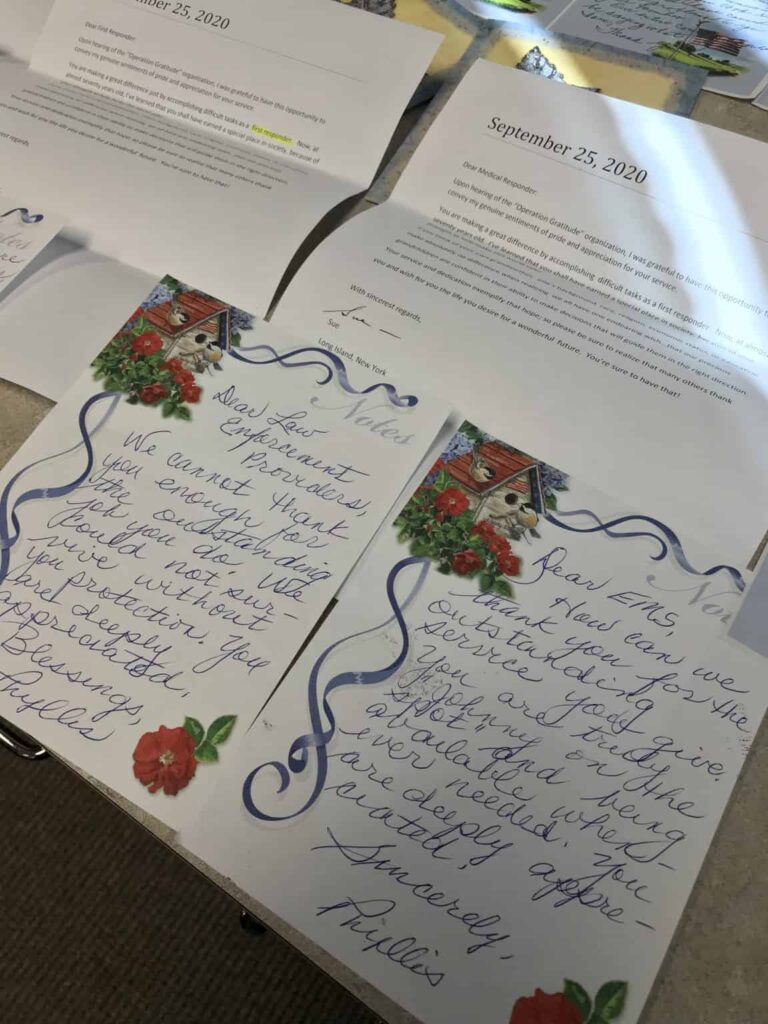 mber 25, 2020
Dear First Responder:
Upon hearing of the "Operation Gratitude" organization, I was grateful to have this opportunity to
convey my genuine sentiments of pride and appreciation for your service.
You are making a great difference just by accomplishing difficult tasks as a first responder. Now, at
almost seventy years old, I've learned that you shall have earned a special place in society, because of
and wish for you the life you desire for a wonderful future. You're sure to have that!
regards,
September 25, 2020
Dear Medical Responder:
Upon hearing of the "Operation Gratitude" organization, I was grateful to have this opportunity to
convey my genuine sentiments of pride and appreciation for your service.
You are making a great difference by accomplishing difficult tasks as a first responder. Now, at almost
seventy years old, I've learned that you shall have earned a special place in society, because of
grandchildren are confident in their ability to make decisions that will guide them in the right direction.
Your service and dedication exemplify that hope, so please be sure to realize that many others thank
you and wish for you the life you desire for a wonderful future. You're sure to have that!
With sincerest regards,
Sue
Sue
Long Island, New York
Notes
Dear Law
Enforcement
Providers,
We cannot thank
you enough for
the outstanding
job you do. We
could not sur-
vive without
protection. You
are deeply
appreciated.
Blessings,
Phyllis
Dear EMS,
How can we
thank you for the
outstanding
service you give.
You are truly
"Johnny on the
spot" and being
available when-
ever needed. You
are deeply appre-
ciated.
Sincerely,
Phyllis